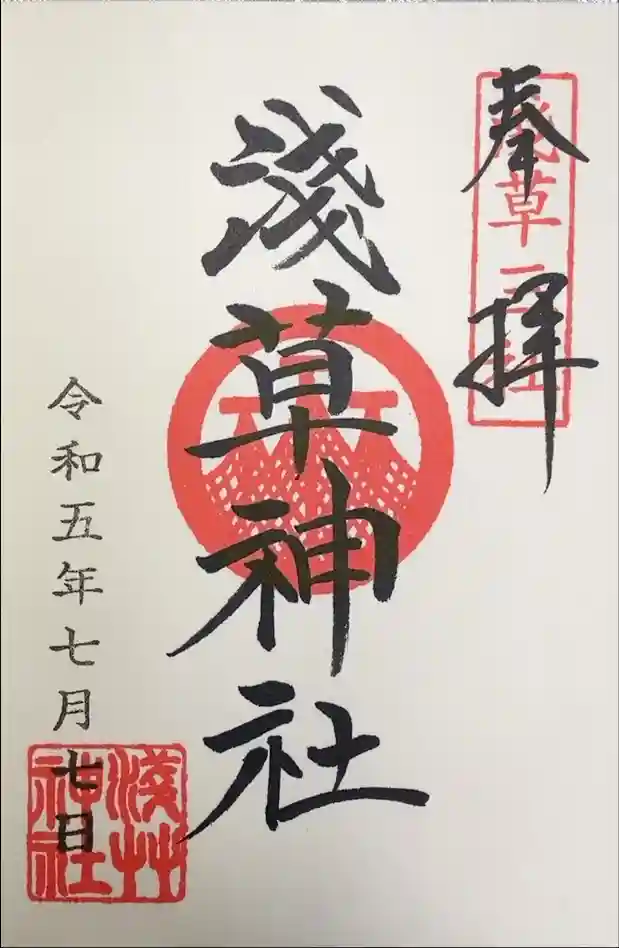 奉拝
浅草三社
淺草神社
令和五年七月七日
淺草神社